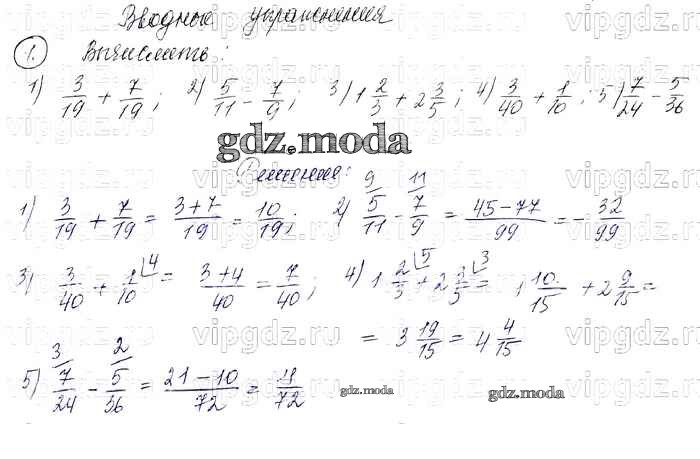 Вводные упражнения
1. Вычислить:
1) 3/19 + 7/19; 2) 5/11 - 7/9; 3) 1 2/3 + 2 3/5; 4) 3/40 + 1/10; 5) 7/24 - 5/36
gdz.moda
Решения:
1) 3/19 + 7/19 = 3+7/19 = 10/19; 2) 9 5/11 - 11 7/9 = 45-77/99 = - 32/99
3) 3/40 + 1/10 4 = 3+4/40 = 7/40; 4) 1 2/3 5 + 2 3/5 3 = 1 10/15 + 2 9/15 =
= 3 19/15 = 4 4/15
5) 3 7/24 - 2 5/36 = 21-10/72 = 11/72
gdz.moda
gdz.moda
vipgdz.ru